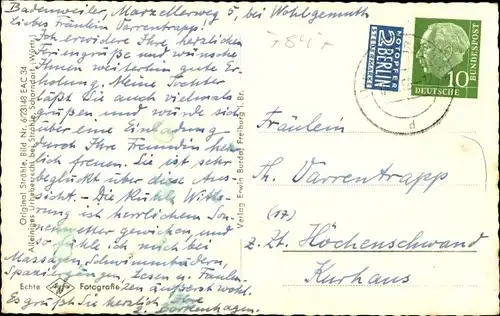 Badenweiler, Marzellerweg 5, bei Wohlgemuth
Liebes Fräulein Varrentrapp!
Ich erwidere Ihre herzlichen
Feriengrüße und wünsche
Ihnen weiterhin gute Er-
holung. Meine Tochter
läßt Sie auch vielmals
grüßen und würde sich
über eine Einladung
durch Ihre Freundin herz-
lich freuen. Sie ist sehr
beglückt über diese Aus-
sicht. - Die kühle Witte-
rung ist herrlichem Son-
nenwetter gewichen, und
so fühle ich mich bei
Massagen, Schwimmbädern,
Spaziergängen, Lesen u. Faulen-
zen äußerst wohl.
Es grüßt Sie herzlich Ihre
Original Strähle, Bild Nr. 6/23148 EAC 34
Alleiniges Urheberrecht bei Strähle, Schorndorf (Württ.)
Echte Agfa Fotografie
Verlag Erwin Burda, Freiburg i. Br.
NOTOPFER
2 BERLIN
STEUERMARKE
DEUTSCHE
BUNDESPOST
10
d
Fräulein
Th. Varrentrapp
(17)
z. Zt. Höchenschwand
Kurhaus